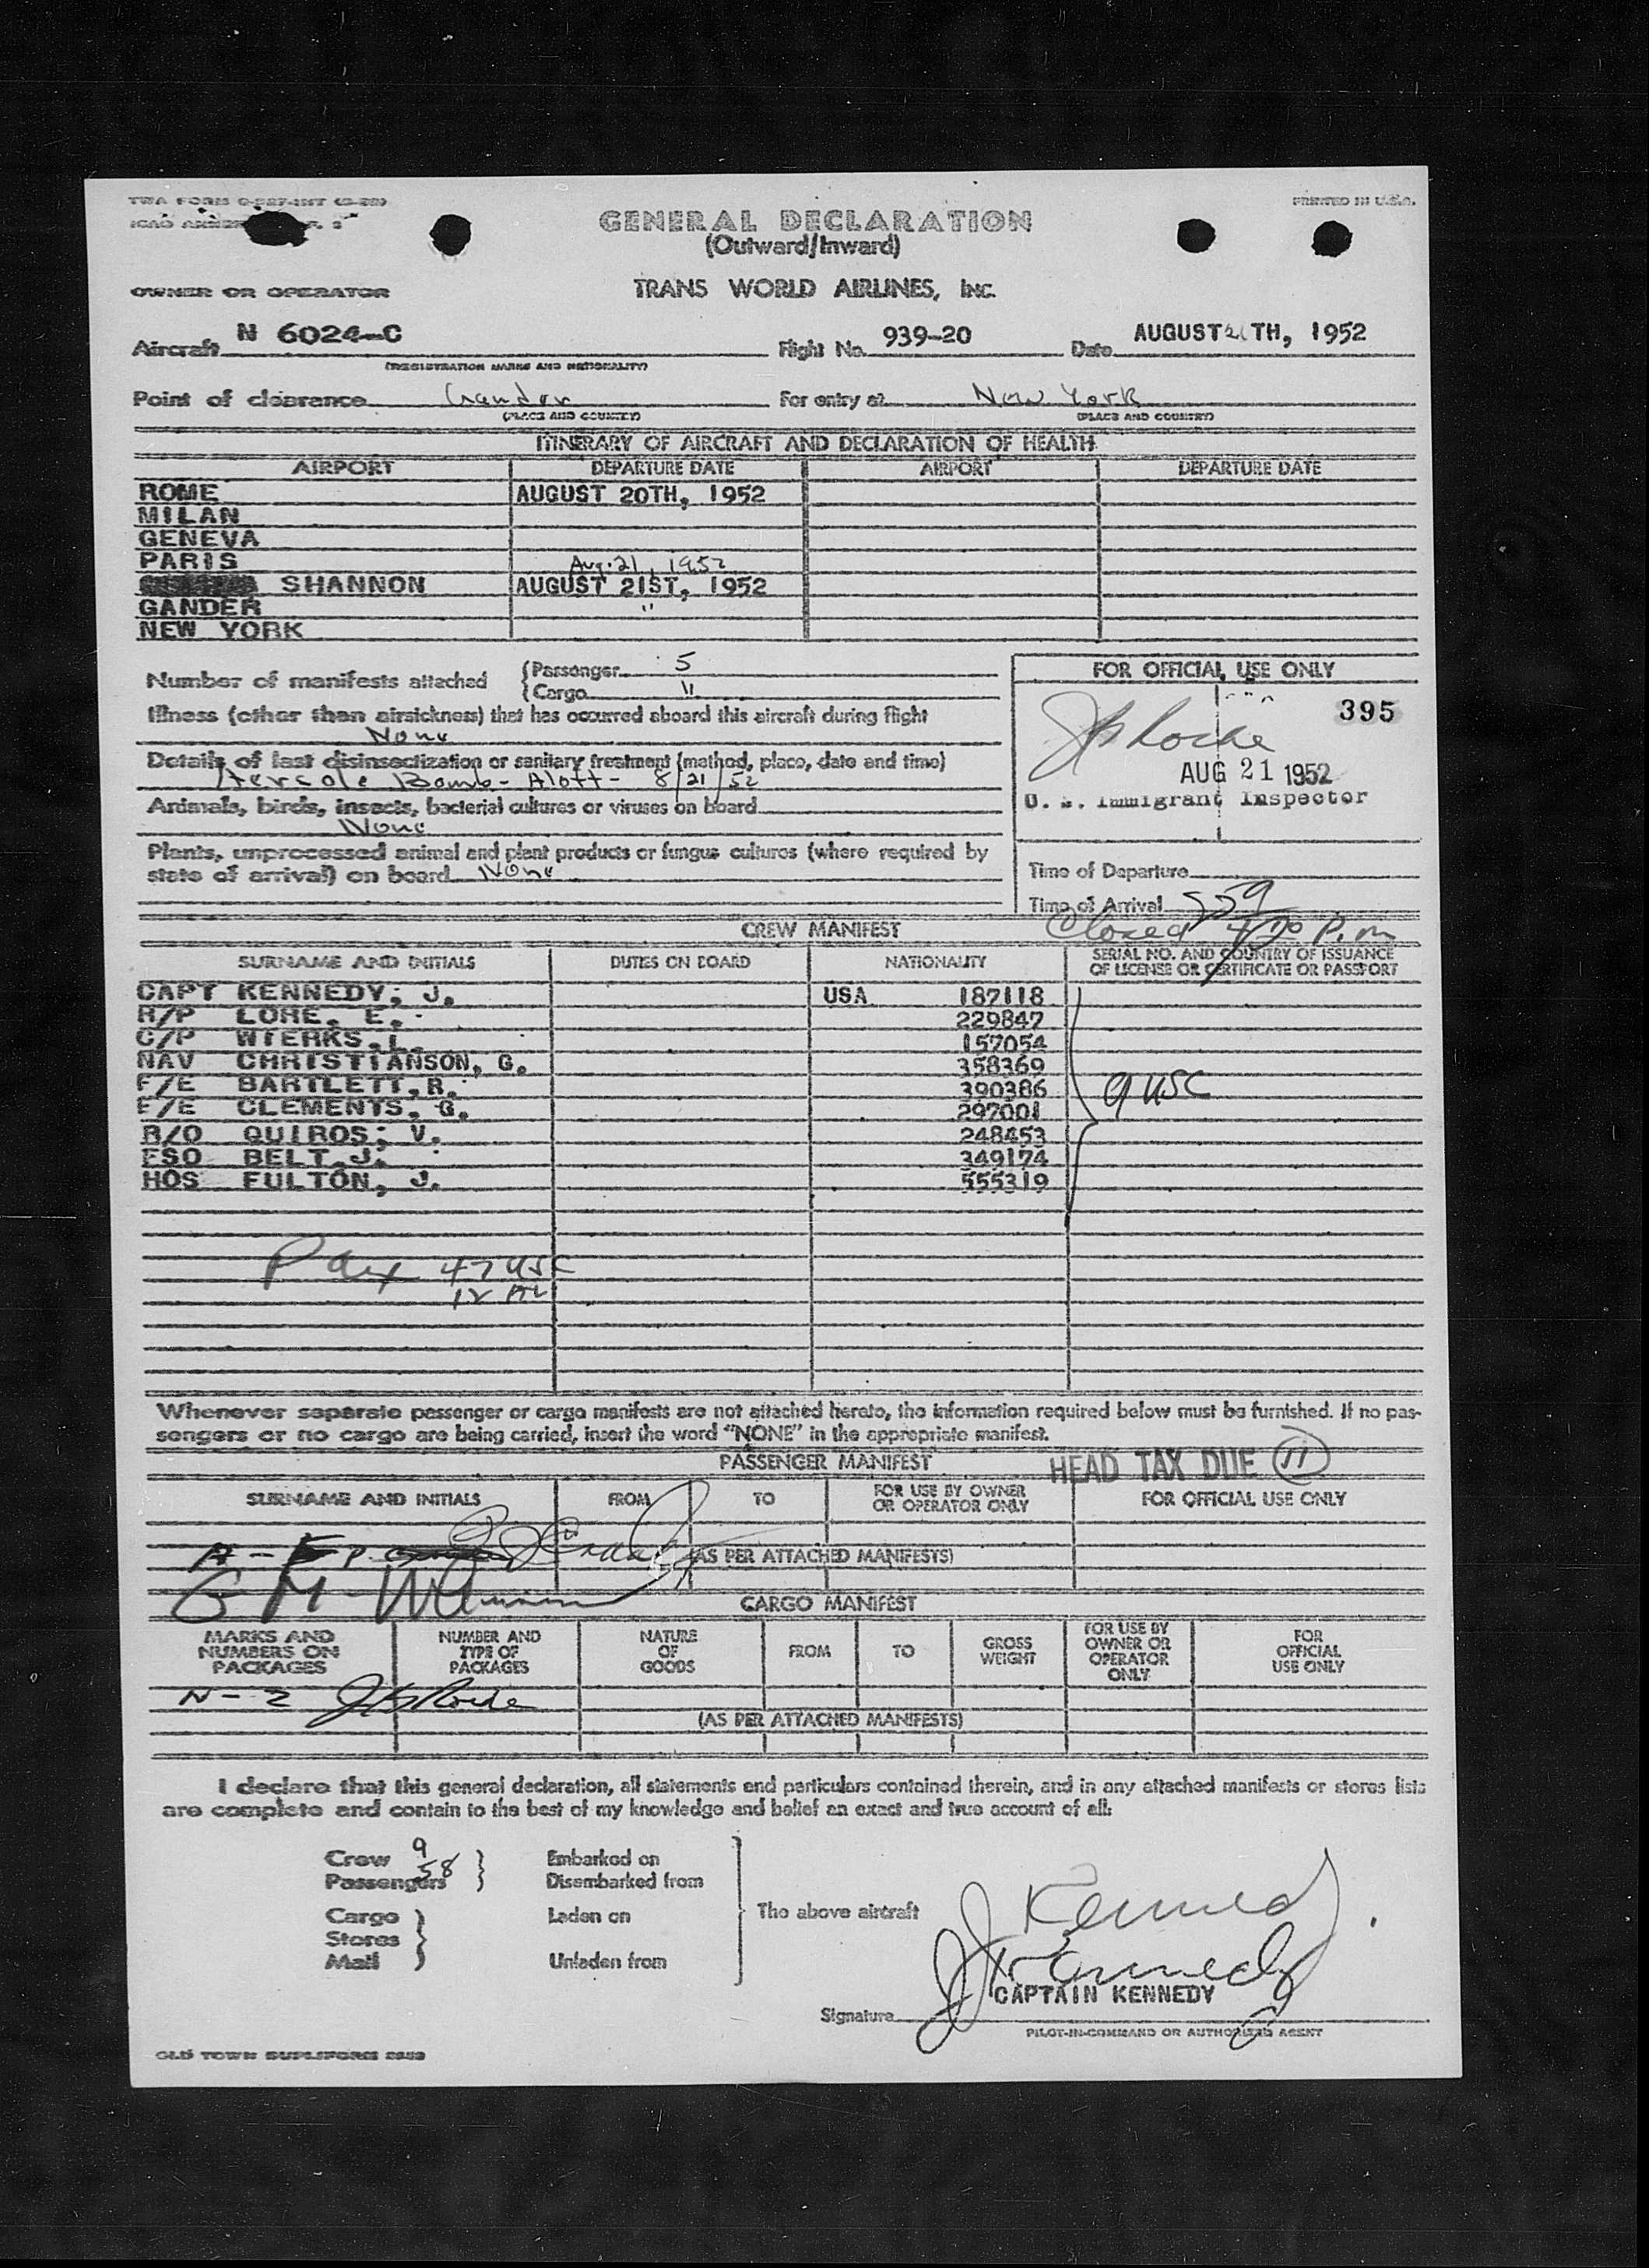 PRINTED IN U.S.A.
GENERAL DECLARATION
(Outward/Inward)
OWNER OR OPERATOR TRANS WORLD AIRLINES, Inc.
Aircraft N 6024-C Flight No. 939-20 Date AUGUST TH, 1952
(REGISTRATION MARKS AND NATIONALITY)
Point of clearance Gander For entry at New York
(PLACE AND COUNTRY) (PLACE AND COUNTRY)
ITINERARY OF AIRCRAFT AND DECLARATION OF HEALTH
AIRPORT DEPARTURE DATE AIRPORT DEPARTURE DATE
ROME AUGUST 20TH, 1952
MILAN
GENEVA
PARIS Aug. 21, 1952
SHANNON AUGUST 21ST, 1952
GANDER "
NEW YORK
Number of manifests attached {Passenger 5
{Cargo 11
Illness (other than airsickness) that has occurred aboard this aircraft during flight
None
Details of last disinsectization or sanitary treatment (method, place, date and time)
Bomb - Aloft - 8/21/52
Animals, birds, insects, bacterial cultures or viruses on board
None
Plants, unprocessed animal and plant products or fungus cultures (where required by
state of arrival) on board None
FOR OFFICIAL USE ONLY
395
AUG 21 1952
U. S. Immigrant Inspector
Time of Departure
Time of Arrival 259
Closed P.m
CREW MANIFEST
SURNAME AND INITIALS DUTIES ON BOARD NATIONALITY SERIAL NO. AND COUNTRY OF ISSUANCE
OF LICENSE OR CERTIFICATE OR PASSPORT
CAPT KENNEDY, J. USA 187118
R/P LORE, E. 229847
C/P WIERKS, L. 157054
NAV CHRISTIANSON, G. 358369
F/E BARTLETT, R. 390386
F/E CLEMENTS, G. 297001
R/O QUIROS, V. 248453
ESO BELT J. 349174
HOS FULTON, J. 555319
9 USC
Pax 47 USC
12 AL
Whenever separate passenger or cargo manifests are not attached hereto, the information required below must be furnished. If no pas-
sengers or no cargo are being carried, insert the word "NONE" in the appropriate manifest.
PASSENGER MANIFEST HEAD TAX DUE 11
SURNAME AND INITIALS FROM TO FOR USE BY OWNER
OR OPERATOR ONLY FOR OFFICIAL USE ONLY
(AS PER ATTACHED MANIFESTS)
CARGO MANIFEST
MARKS AND
NUMBERS ON
PACKAGES
NUMBER AND
TYPE OF
PACKAGES
NATURE
OF
GOODS
FROM TO
GROSS
WEIGHT
FOR USE BY
OWNER OR
OPERATOR
ONLY
FOR
OFFICIAL
USE ONLY
N - 2
(AS PER ATTACHED MANIFESTS)
I declare that this general declaration, all statements and particulars contained therein, and in any attached manifests or stores lists
are complete and contain to the best of my knowledge and belief an exact and true account of all:
Crew 9 } Embarked on
Passengers 58 } Disembarked from
Cargo } Laden on The above aircraft
Stores
Mail Unladen from
J Kennedy
J Kennedy
CAPTAIN KENNEDY
Signature
PILOT-IN-COMMAND OR AUTHORIZED AGENT